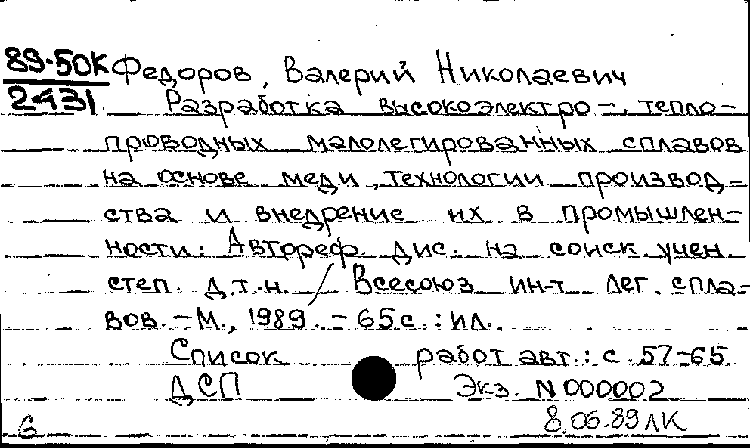 89-50К Федоров, Валерий Николаевич
2431 Разработка высокоэлектро-, тепло-
проводных малолегированных сплавов
на основе меди, технологии производ-
ства и внедрение их в промышлен-
ности: Автореф. дис. на соиск. учен.
степ. д.т.н. / Всесоюз. ин-т лег. спла-
вов. - М., 1989. - 65 с. : ил.
Список работ авт.: с. 57-65
ДСП Экз. N 000002
8.06.89 ЛК
6